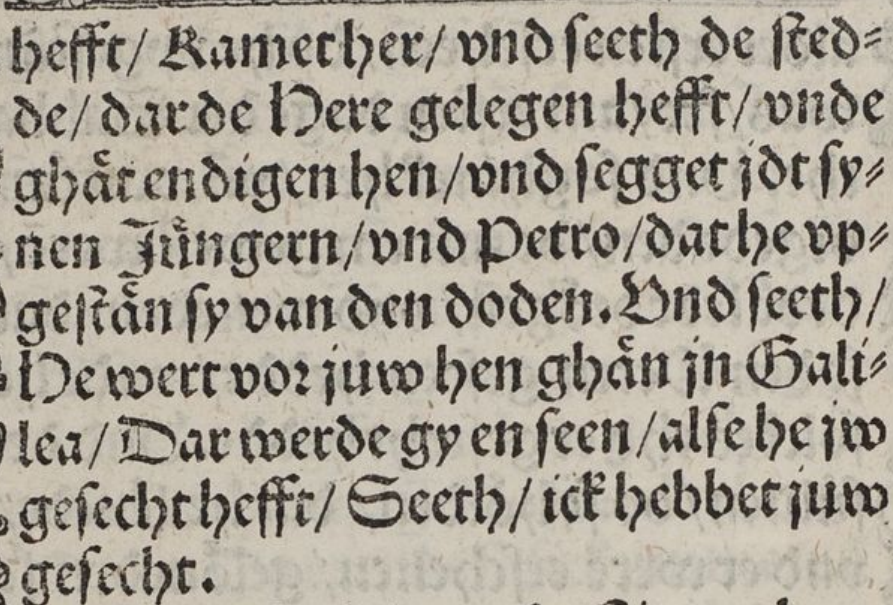 hefft/ Kamet her/ vnd seeth de sted⸗
de/ dar de Here gelegen hefft/ vnde
ghaͤt endigen hen/ vnd segget jdt sy⸗
nen Juͤngern/ vnd Petro/ dat he vp⸗
gestaͤn sy van den doden. Vnd seeth/
He wert vor juw hen ghaͤn jn Gali⸗
lea/ Dar werde gy en seen/ alse he jw
gesecht hefft/ Seeth/ ick hebbet juw
gesecht.